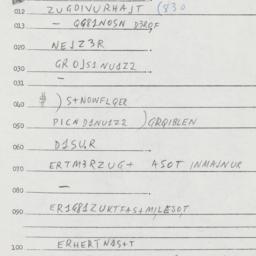 012 ZUGDIVURHAST (830
013 — GG81NOSN D3RQF
020 NE1Z3R
030 GROJS1NU1ZZ
031 —
040 #) S+NOWFLQER
050 PICAD1NU1ZZ )GRQIBLEN
060 D1SUR
070 ERTM3RZUG+ ASOT INMAINUR
080 —
090 ER1G81ZUKTFAS+MILESOT
100 ERHERTNAS+T